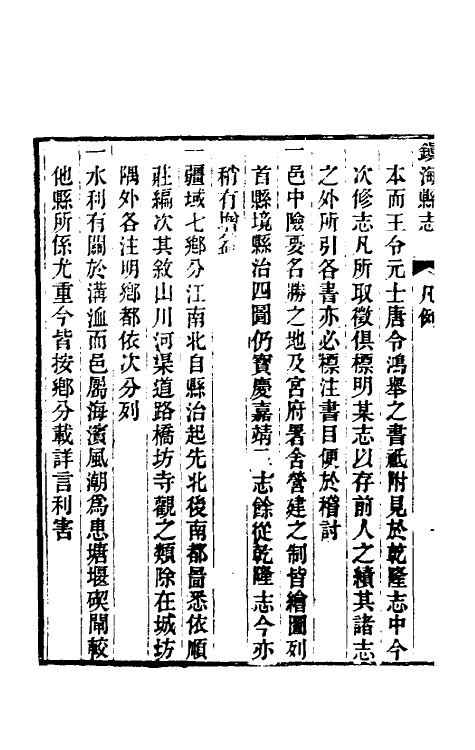 鎮海縣志　凡例
本而王令元士唐令鴻舉之書祗附見於乾隆志中今
次修志凡所取徵俱標明某志以存前人之績其諸志
之外所引各書亦必標注書目便於稽討
一邑中險要名勝之地及宮府署舍營建之制皆繪圖列
首縣境縣治四圖仍寶慶嘉靖二志餘從乾隆志今亦
稍有增益
一疆域七鄉分江南北自縣治起先北後南都啚悉依順
莊編次其敘山川河渠道路橋坊寺觀之類除在城坊
隅外各注明鄉都依次分列
一水利有關於溝洫而邑屬海濱風潮為患塘堰碶閘較
他縣所係尤重今皆按鄉分載詳言利害